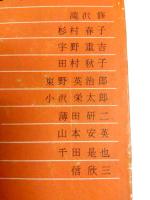 滝沢修
杉村春子
宇野重吉
田村秋子
東野英治郎
小沢栄太郎
薄田研二
山本安英
千田是也
信欣三